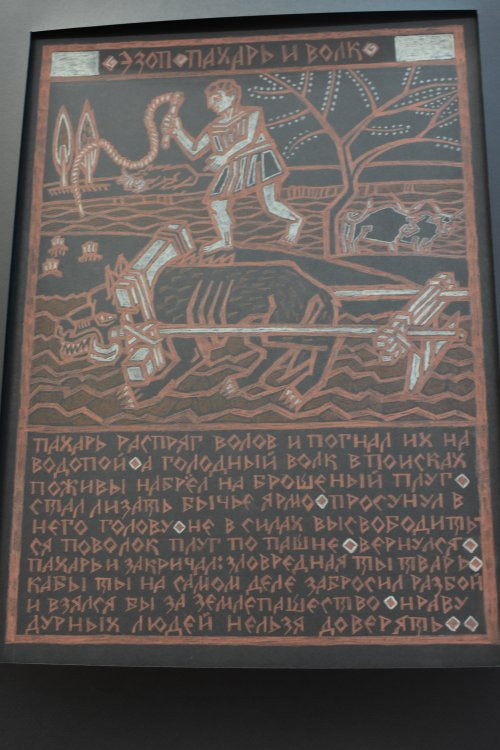 ЭЗОП ПАХАРЬ И ВОЛК
ПАХАРЬ РАСПРЯГ ВОЛОВ И ПОГНАЛ ИХ НА
ВОДОПОЙ А ГОЛОДНЫЙ ВОЛК В ПОИСКАХ
ПОЖИВЫ НАБРЁЛ НА БРОШЕНЫЙ ПЛУГ
СТАЛ ЛИЗАТЬ БЫЧЬЕ ЯРМО ПРОСУНУЛ В
НЕГО ГОЛОВУ НЕ В СИЛАХ ВЫСВОБОДИТЬ
СЯ ПОВОЛОК ПЛУГ ПО ПАШНЕ ВЕРНУЛСЯ
ПАХАРЬ И ЗАКРИЧАЛ: ЗЛОВРЕДНАЯ ТЫ ТВАРЬ
КАБЫ ТЫ НА САМОМ ДЕЛЕ ЗАБРОСИЛ РАЗБОЙ
И ВЗЯЛСЯ БЫ ЗА ЗЕМЛЕПАШЕСТВО НРАВУ
ДУРНЫХ ЛЮДЕЙ НЕЛЬЗЯ ДОВЕРЯТЬ